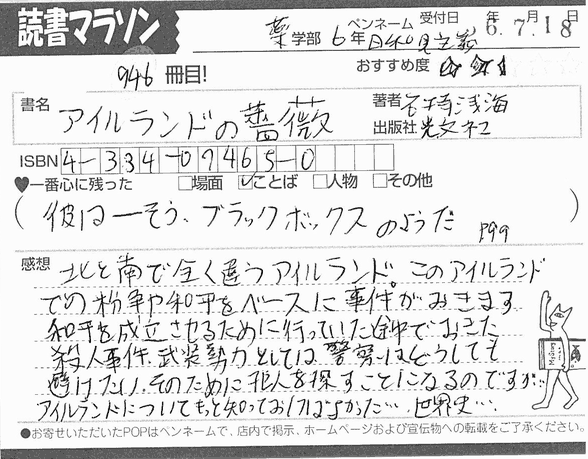 読書マラソン
薬学部 6年 ペンネーム 日和見主義 受付日 年6.7月18日
946 冊目!
おすすめ度
書名 アイルランドの薔薇
著者 石持浅海
出版社 光文ネコ
ISBN 4-334-07465-0
♥一番心に残った □場面 ☑ことば □人物 □その他
(彼は一そう、ブラックボックスのようだ P99)
感想 北と南で全く違うアイルランド。このアイルランド
での紛争や和平をベースに事件がおきます
和平を成立させるために行っていた途中でおきた
殺人事件、武装勢力としては警察はどうしても
避けたい、そのために犯人を探すことになるのですが…
アイルランドについてもっと知っておけばよかった… 世界史…
●お寄せいただいたPOPはペンネームで、店内で掲示、ホームページおよび宣伝物への転載をご了承ください。